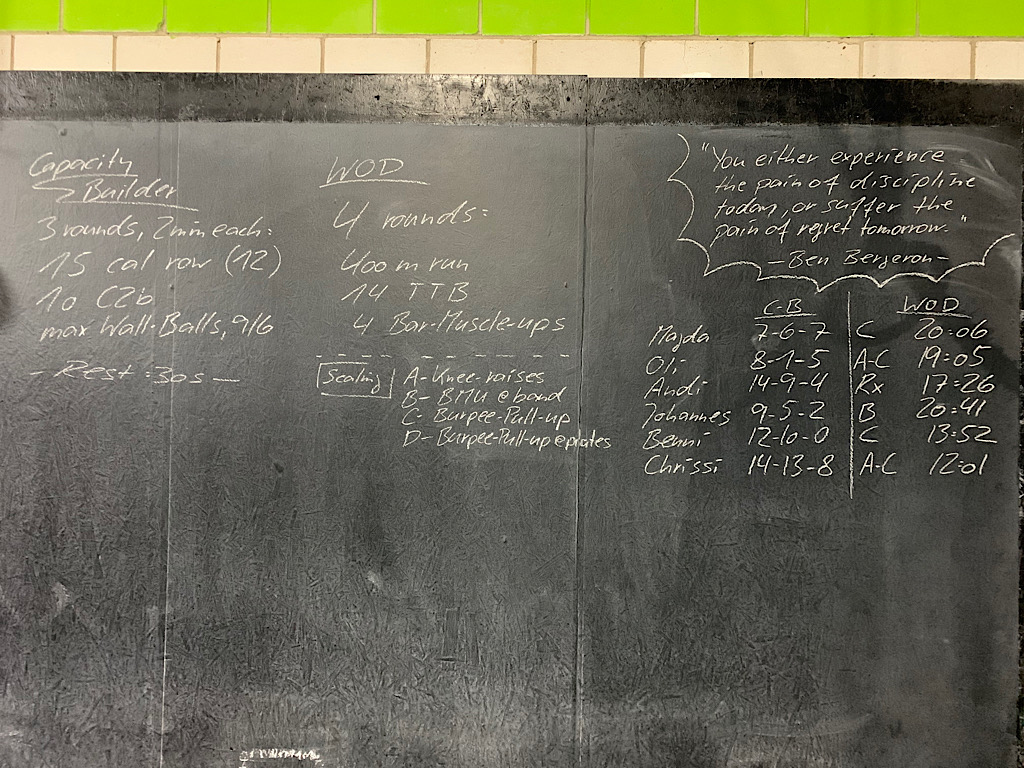 Capacity
Builder
3 rounds, 2min each:
15 cal row (12)
10 C2b
max Wall-Balls, 9/6
- Rest :30s -
WOD
4 rounds:
400 m run
14 TTB
4 Bar-Muscle-ups
Scaling
A - Knee-raises
B - BMU @ band
C - Burpee-Pull-up
D - Burpee-Pull-up @ pirates
"You either experience
the pain of discipline
today, or suffer the
pain of regret tomorrow."
- Ben Bergeron -
C-B WOD
Majda 7-6-7 C 20:06
Oli 8-1-5 A-C 19:05
Andi 14-9-4 Rx 17:26
Johannes 9-5-2 B 20:41
Benni 12-10-0 C 13:52
Chrissi 14-13-8 A-C 12:01